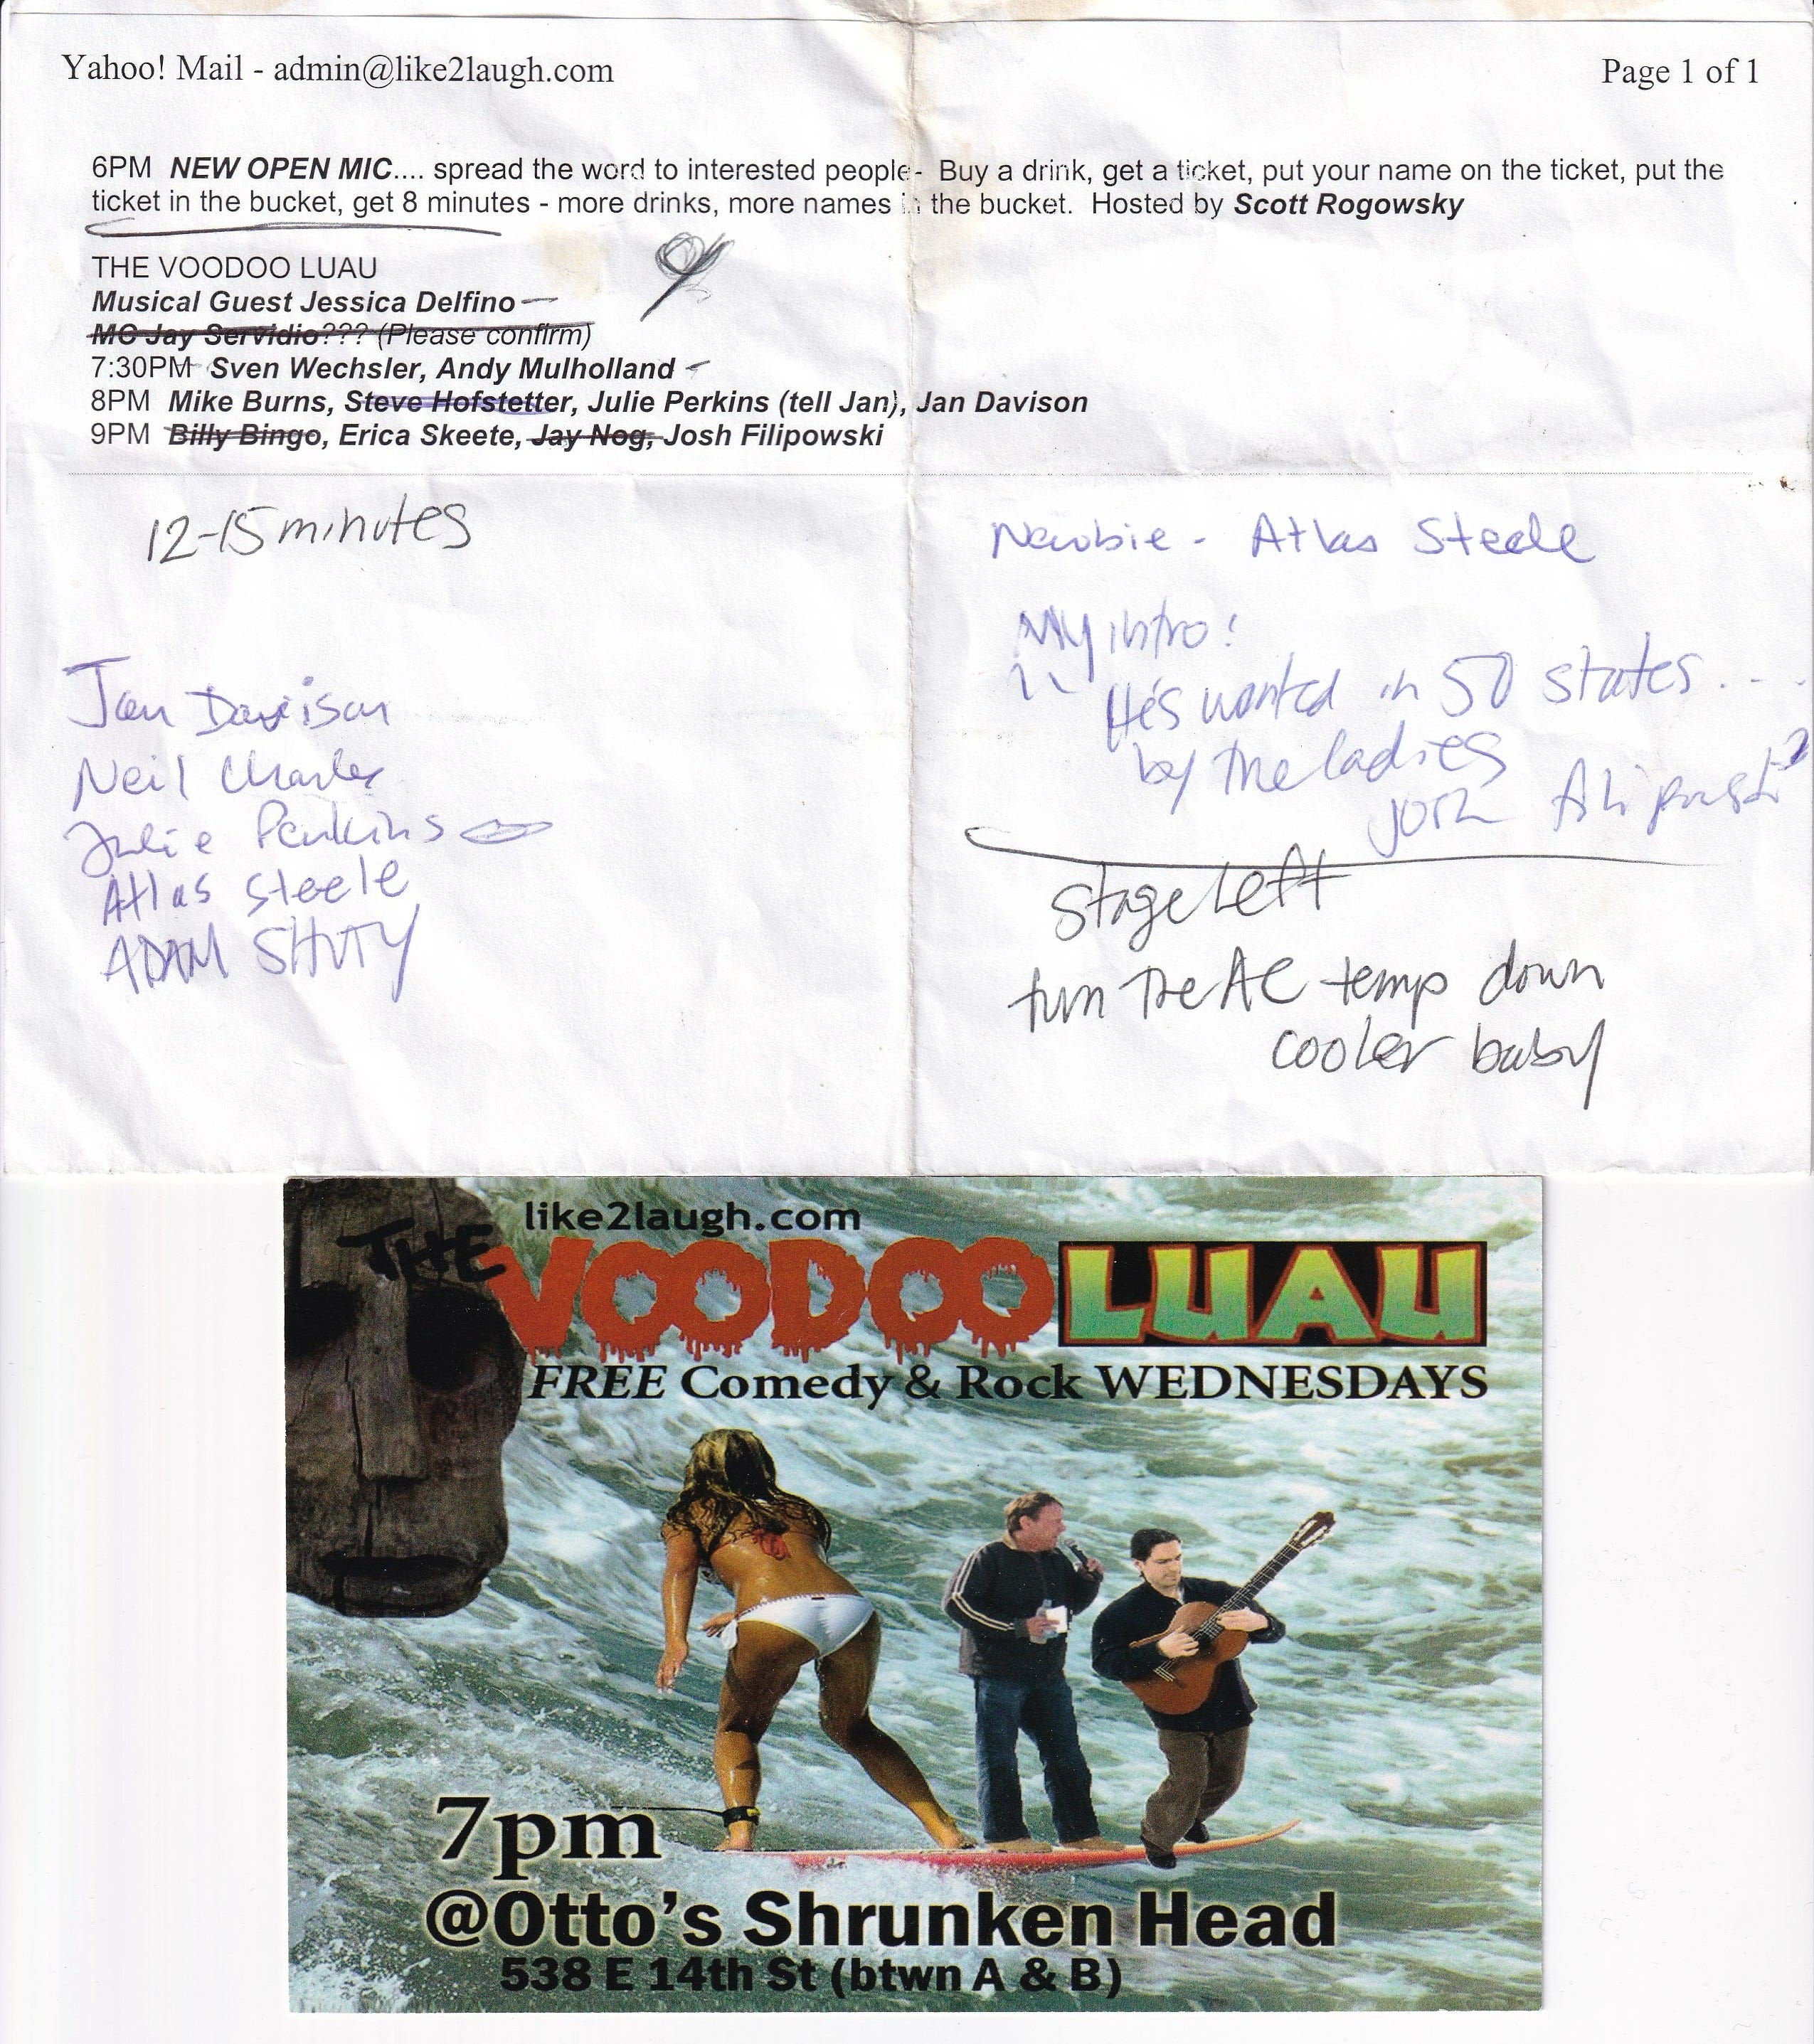 Yahoo! Mail - admin@like2laugh.com
Page 1 of 1
6PM NEW OPEN MIC.... spread the word to interested people- Buy a drink, get a ticket, put your name on the ticket, put the
ticket in the bucket, get 8 minutes - more drinks, more names in the bucket. Hosted by Scott Rogowsky
THE VOODOO LUAU
Musical Guest Jessica Delfino
MC Jay Servidio??? (Please confirm)
7:30PM Sven Wechsler, Andy Mulholland
8PM Mike Burns, Steve Hofstetter, Julie Perkins (tell Jan), Jan Davison
9PM Billy Bingo, Erica Skeete, Jay Nog, Josh Filipowski
12-15 minutes
Jan Davison
Neil Charles
Julie Perkins
Atlas Steele
ADAM SHUTY
Newbie - Atlas Steele
My intro:
"He's wanted in 50 states...
by the ladies
Josh
stage Left
turn the AC temp down
cooler baby
like2laugh.com
THE VOODOO LUAU
FREE Comedy & Rock WEDNESDAYS
7pm
@Otto's Shrunken Head
538 E 14th St (btwn A & B)